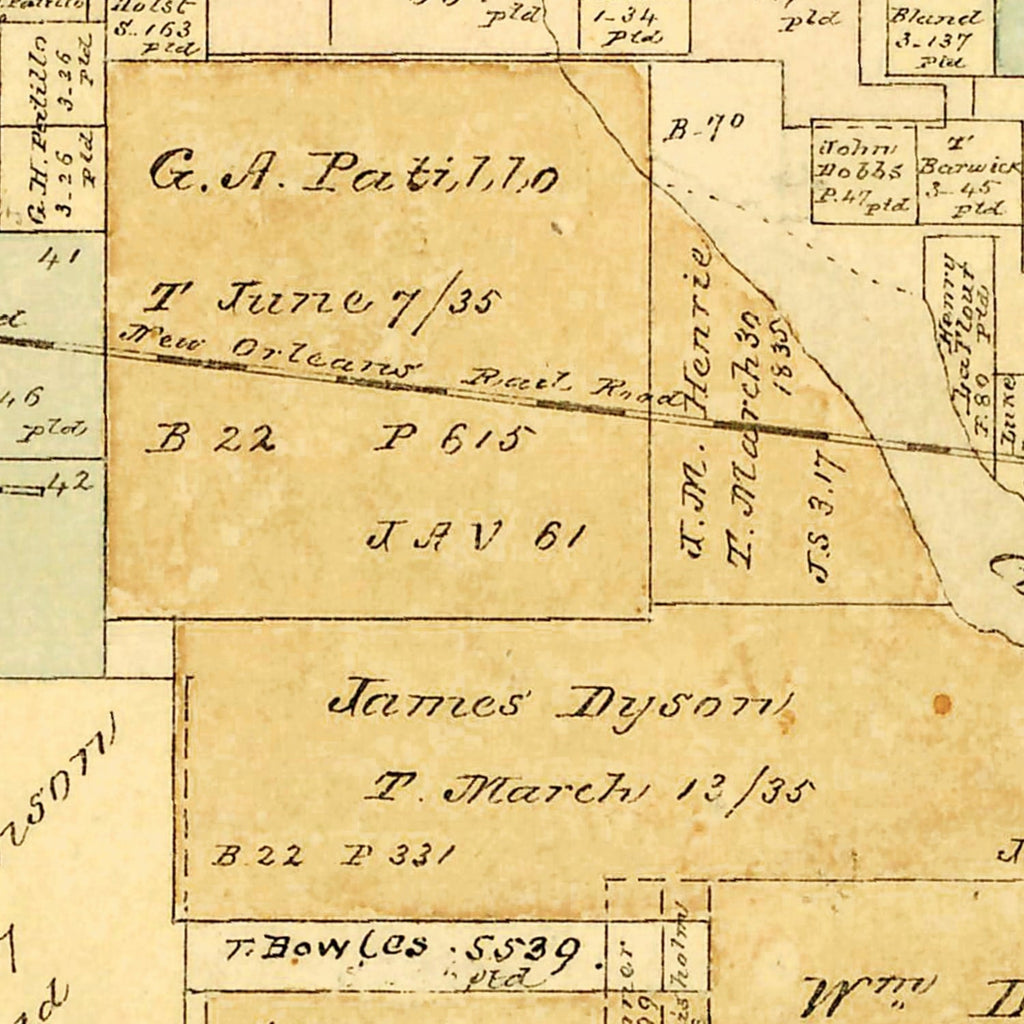 Holst
S. 163
Ptd
ptd
1-34
Ptd
ptd
Bland
3-137
Ptd
G.H. Patillo
3-26
Ptd
3-26
Ptd
B-70
John
Dobbs
P.47 ptd
T
Barwick
3-45
ptd
G. A. Patillo
T June 7/35
New Orleans Rail Road
B 22 P 615
J A V 61
41
46
ptd
42
J. M. Henrie
T. March 30
1835
J.S 3.17
Henry
LaFlour
F.80 Ptd
Luke
James Dyson
T. March 13/35
B 22 P 331
T. Bowles. 5539.
ptd
Wm